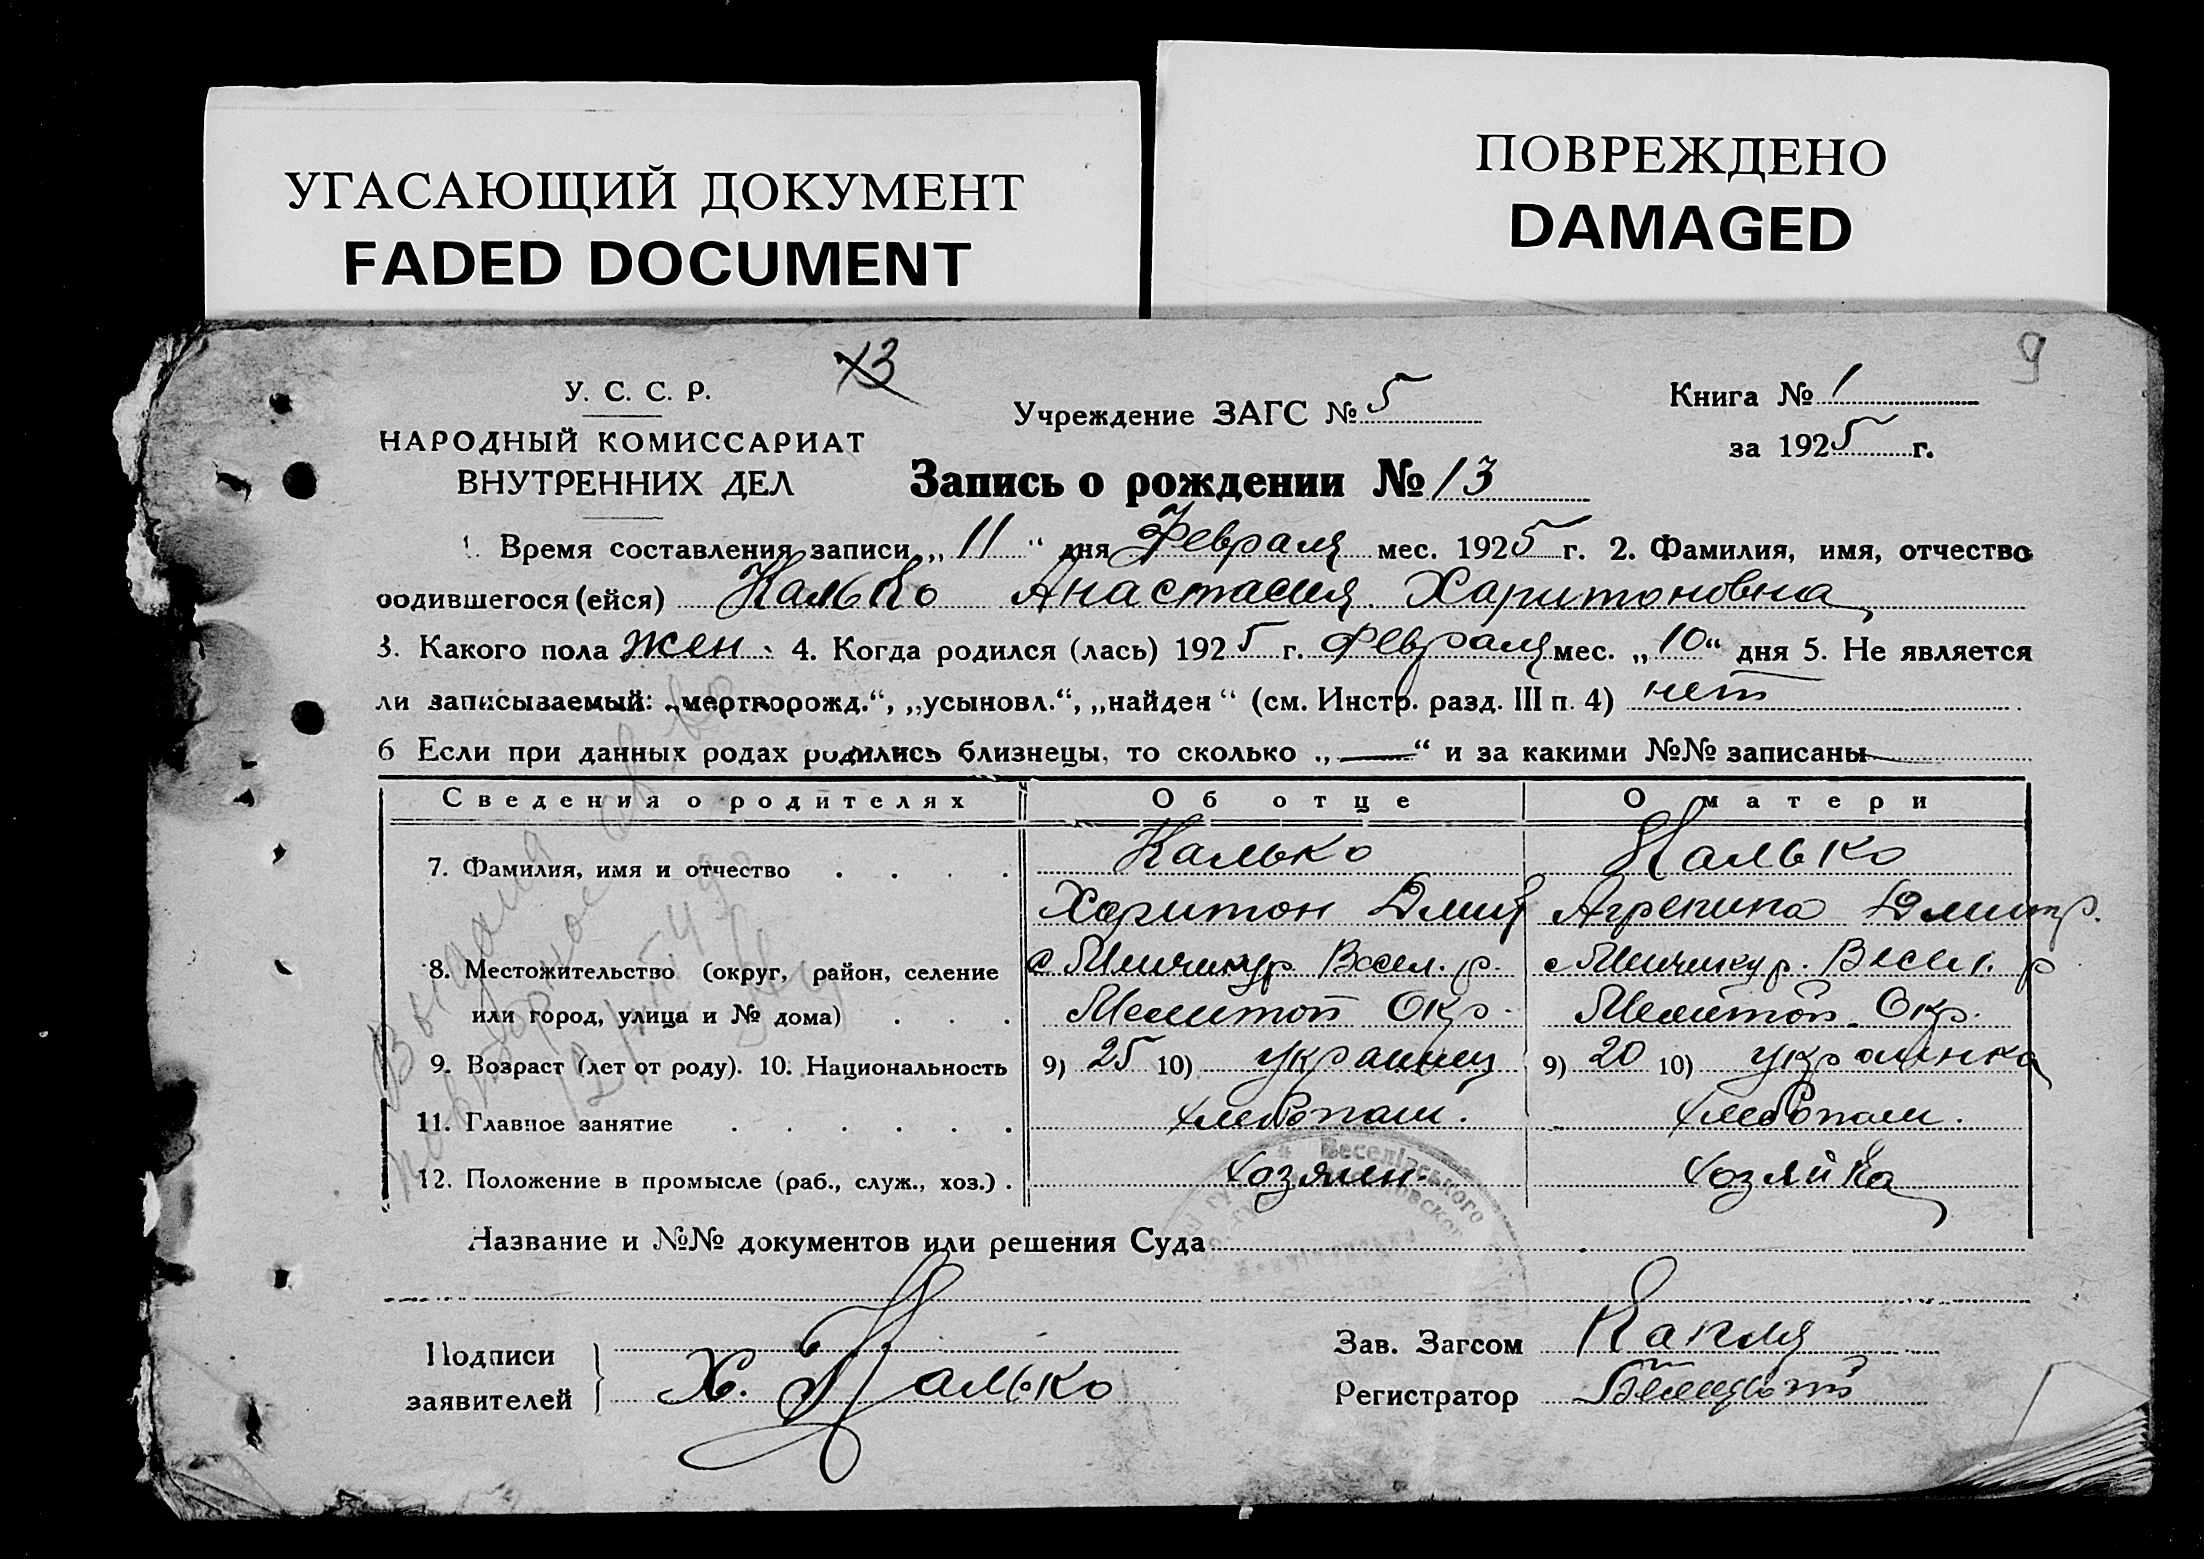 УГАСАЮЩИЙ ДОКУМЕНТ
FADED DOCUMENT
ПОВРЕЖДЕНО
DAMAGED
9
13
У. С. С. Р.
НАРОДНЫЙ КОМИССАРИАТ
ВНУТРЕННИХ ДЕЛ
Учреждение ЗАГС № 5
Книга № 1
за 1925 г.
Запись о рождении № 13
1. Время составления записи „ 11 “ дня Февраля мес. 1925 г. 2. Фамилия, имя, отчество
родившегося (ейся) Калько Анастасия Харитоновна
3. Какого пола жен. 4. Когда родился (лась) 1925 г. февраля мес. „ 10 “ дня 5. Не является
ли записываемый: „мертворожд.“, „усыновл.“, „найден“ (см. Инстр. разд. III п. 4) нет
6 Если при данных родах родились близнецы, то сколько „ — “ и за какими №№ записаны —
Сведения о родителях Об отце О матери
7. Фамилия, имя и отчество . . . . Калько Калько
Харитон Дмит Агрепина Дмитр.
8. Местожительство (округ, район, селение с Менчикур. Весел. р. с Менчикур. Весел. р
или город, улица и № дома) . . . Мелитоп Окр. Мелитоп. Окр.
9. Возраст (лет от роду). 10. Национальность 9) 25 10) украинец 9) 20 10) украинка
11. Главное занятие . . . . . . хлебопаш. хлебопаш.
12. Положение в промысле (раб., служ., хоз.) . хозяин. хозяйка
Веселівського
Название и №№ документов или решения Суда
Подписи
заявителей } Х. Калько
Зав. Загсом Капля
Регистратор
Выдано св-во
повторное